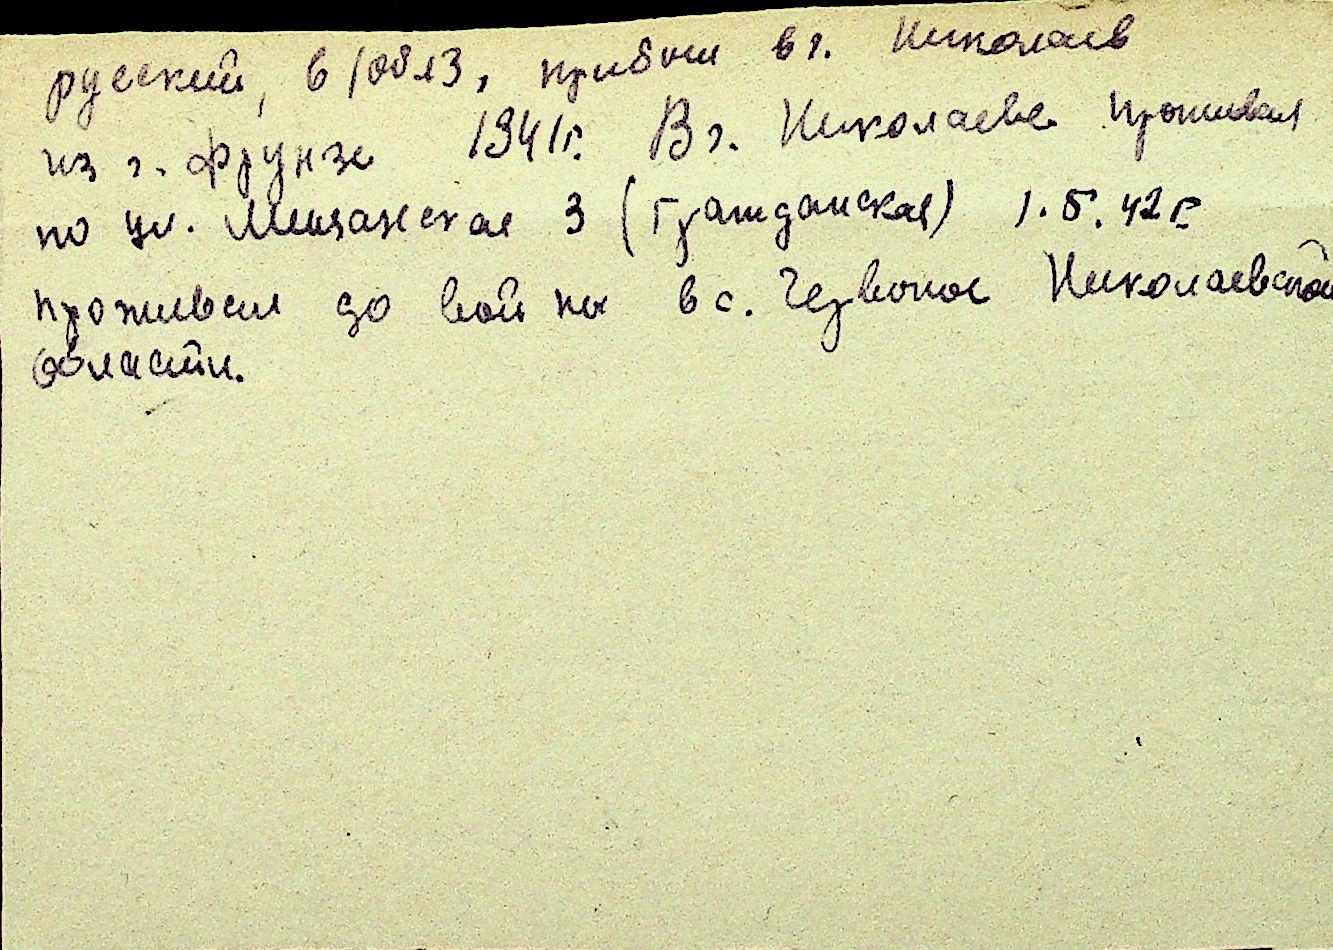 русский, в/обяз, прибыл в г. Николаев
из г. Фрунзе 1941г. В г. Николаеве проживал
по ул. Мещанская 3 (Гражданская) 1.5.42г.
проживал до войны в с. Червоное Николаевской
области.